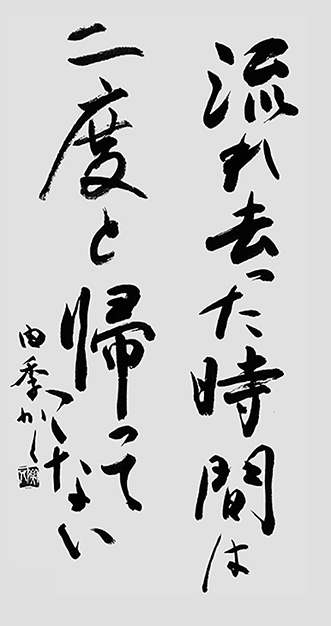 流れ去った時間は
二度と帰ってこない
由季かく